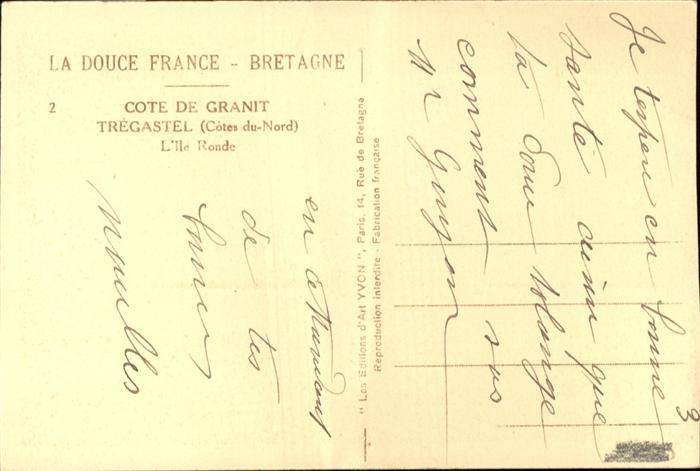 LA DOUCE FRANCE - BRETAGNE
2
COTE DE GRANIT
TRÉGASTEL (Côtes du-Nord)
L'Ile Ronde
" Les Editions d'Art YVON ", Paris, 14, Rue de Bretagne
Reproduction interdite - Fabrication française
Je tespere en bonne
santé ainsi que
ta Solange
comment vas
Mr Guyon
en attendant
de tes
bonnes
nouvelles
3